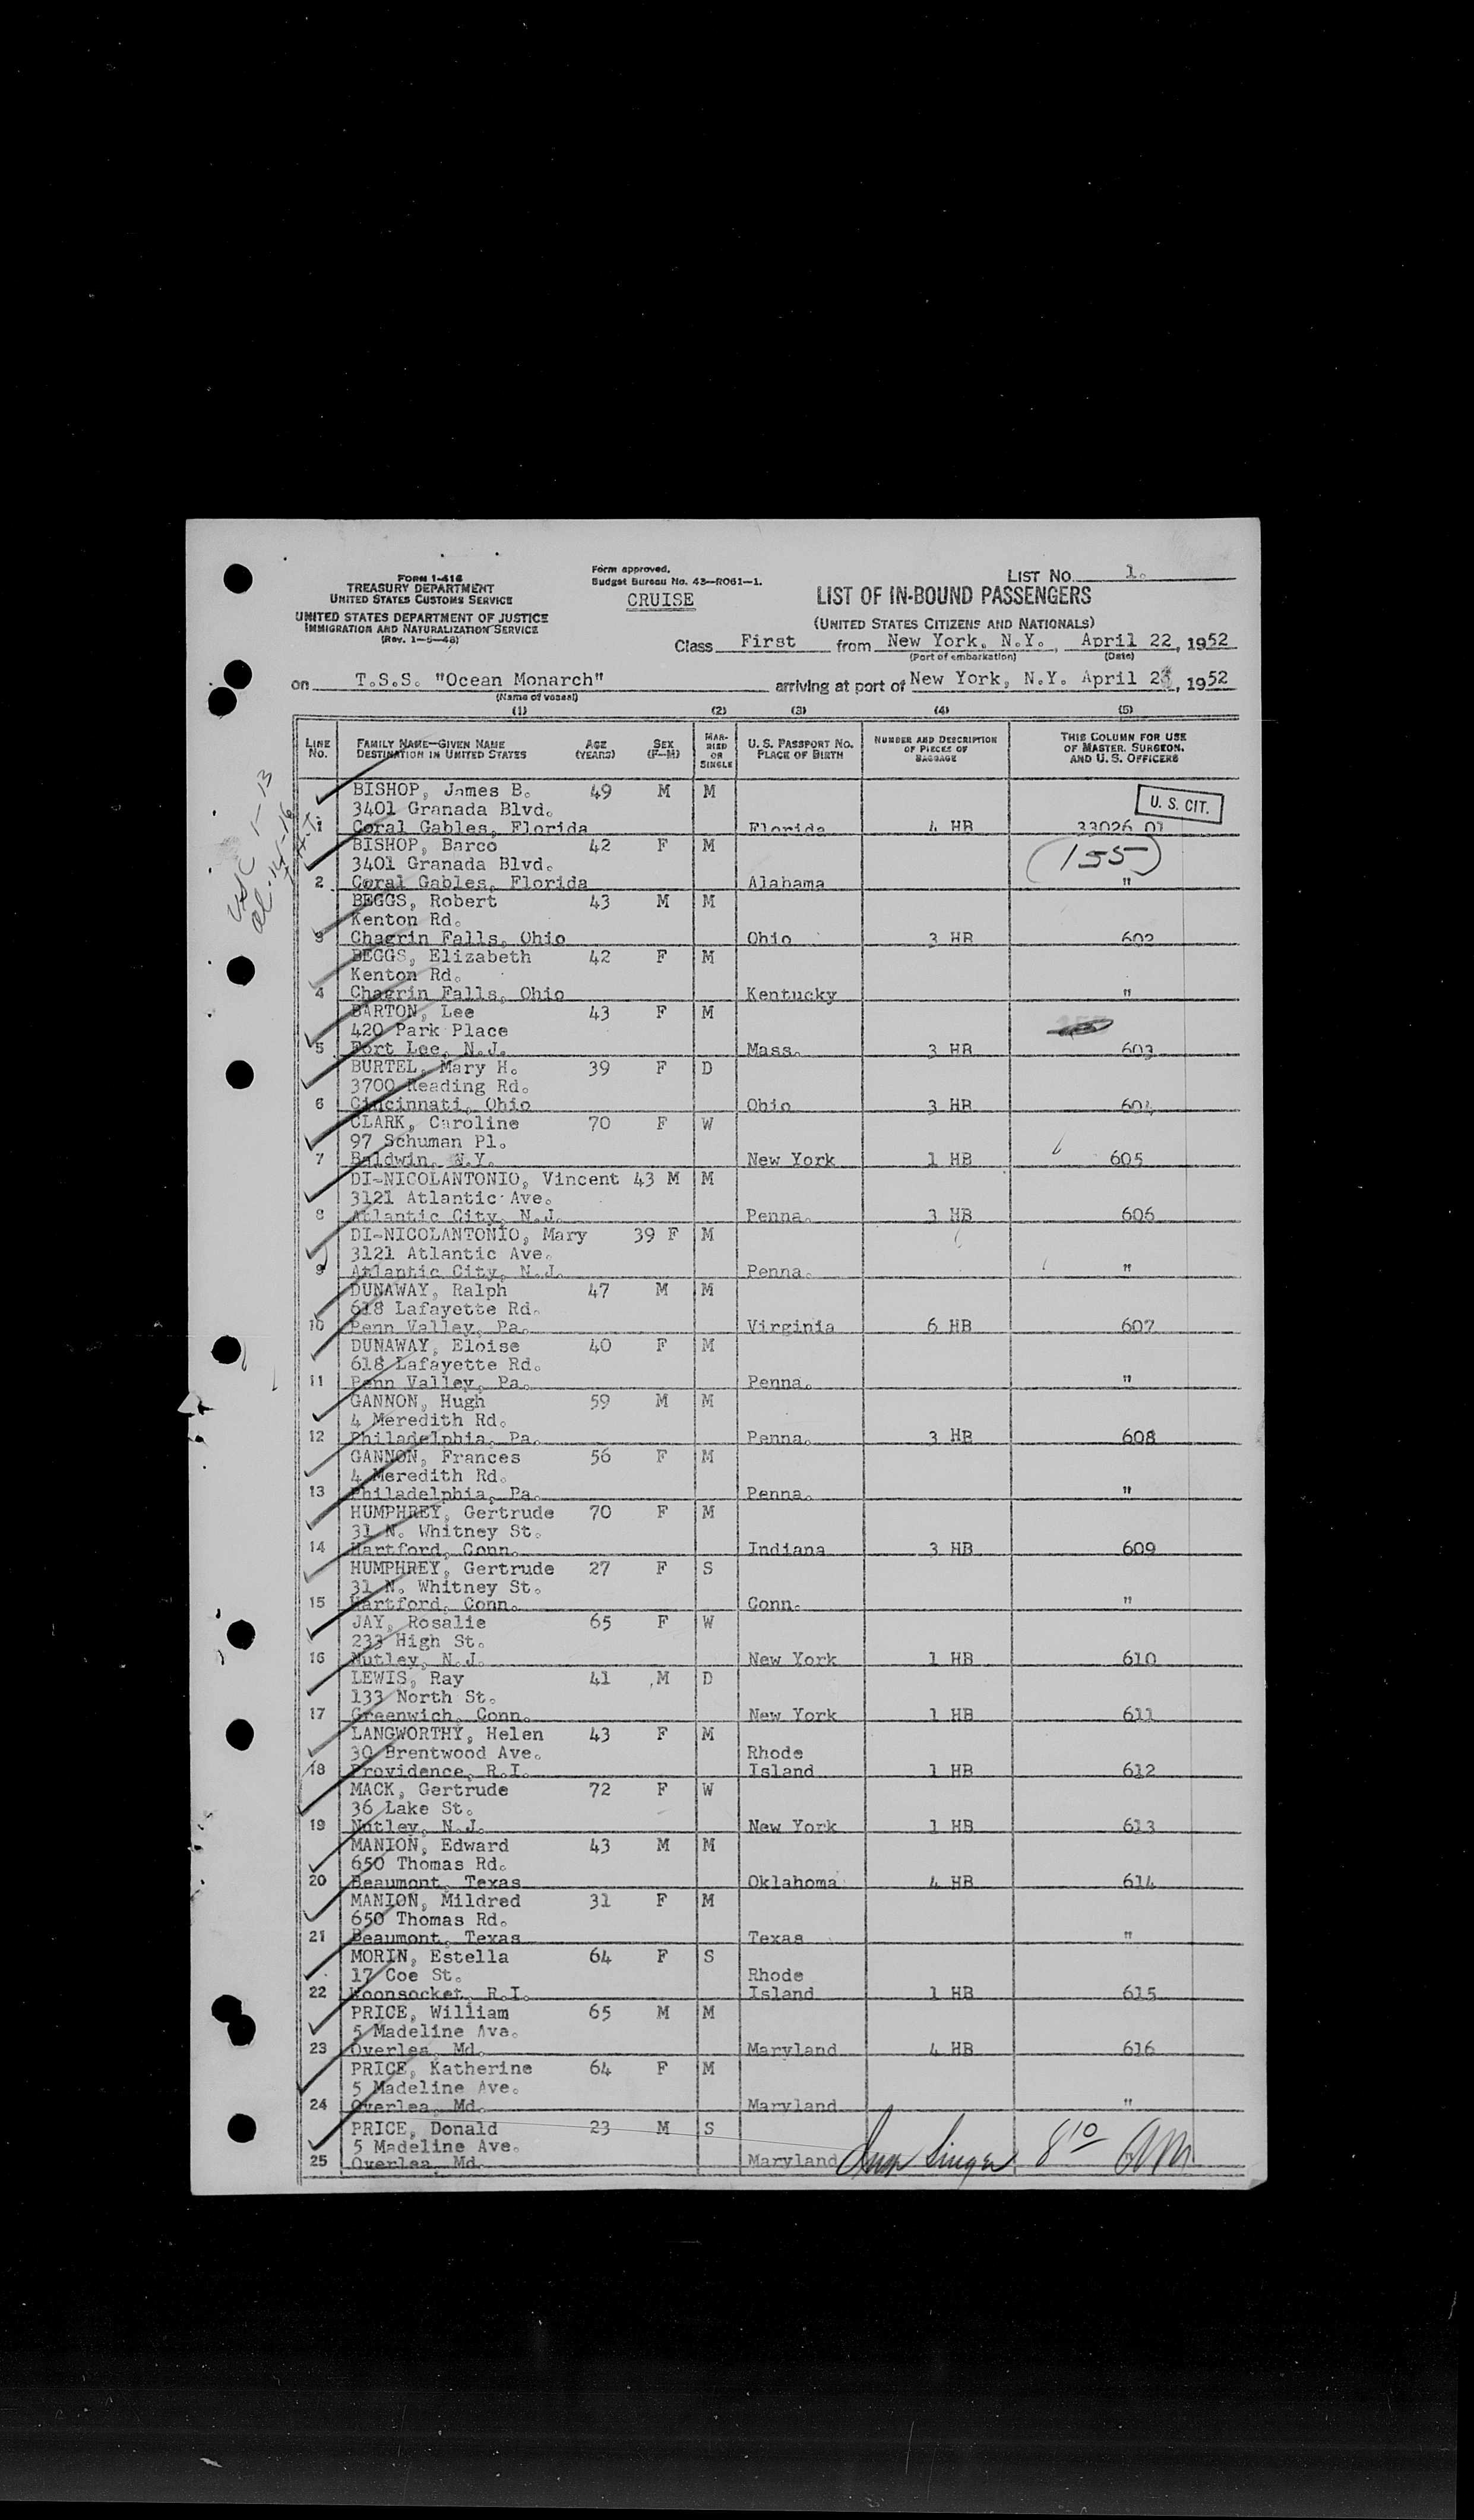 FORM I-416
TREASURY DEPARTMENT
UNITED STATES CUSTOMS SERVICE
UNITED STATES DEPARTMENT OF JUSTICE
IMMIGRATION AND NATURALIZATION SERVICE
(Rev. 1-5-48)
Form approved.
Budget Bureau No. 43-R061-1.
CRUISE
LIST NO. 1.
LIST OF IN-BOUND PASSENGERS
(UNITED STATES CITIZENS AND NATIONALS)
Class First from New York, N.Y., April 22, 1952
(Port of embarkation) (Date)
on T.S.S. "Ocean Monarch" arriving at port of New York, N.Y. April 2, 1952
(Name of vessel)
(1) (2) (3) (4) (5)
LINE No. FAMILY NAME—GIVEN NAME DESTINATION IN UNITED STATES AGE (YEARS) SEX (F-M) MARRIED OR SINGLE U. S. PASSPORT NO. PLACE OF BIRTH NUMBER AND DESCRIPTION OF PIECES OF BAGGAGE THIS COLUMN FOR USE OF MASTER, SURGEON, AND U. S. OFFICERS
BISHOP, James B. 49 M M U. S. CIT.
3401 Granada Blvd.
1 Coral Gables, Florida Florida 4 HB 33026 01
BISHOP, Barco 42 F M (155)
3401 Granada Blvd.
2 Coral Gables, Florida Alabama "
BEGGS, Robert 43 M M
Kenton Rd.
3 Chagrin Falls, Ohio Ohio 3 HB 602
BEGGS, Elizabeth 42 F M
Kenton Rd.
4 Chagrin Falls, Ohio Kentucky "
BARTON, Lee 43 F M
420 Park Place
5 Fort Lee, N.J. Mass. 3 HB 603
BURTEL, Mary H. 39 F D
3700 Reading Rd.
6 Cincinnati, Ohio Ohio 3 HB 604
CLARK, Caroline 70 F W
97 Schuman Pl.
7 Baldwin, N.Y. New York 1 HB 605
DI-NICOLANTONIO, Vincent 43 M M
3121 Atlantic Ave.
8 Atlantic City, N.J. Penna. 3 HB 606
DI-NICOLANTONIO, Mary 39 F M
3121 Atlantic Ave.
9 Atlantic City, N.J. Penna. "
DUNAWAY, Ralph 47 M M
618 Lafayette Rd.
10 Penn Valley, Pa. Virginia 6 HB 607
DUNAWAY, Eloise 40 F M
618 Lafayette Rd.
11 Penn Valley, Pa. Penna. "
GANNON, Hugh 59 M M
4 Meredith Rd.
12 Philadelphia, Pa. Penna. 3 HB 608
GANNON, Frances 56 F M
4 Meredith Rd.
13 Philadelphia, Pa. Penna. "
HUMPHREY, Gertrude 70 F M
31 N. Whitney St.
14 Hartford, Conn. Indiana 3 HB 609
HUMPHREY, Gertrude 27 F S
31 N. Whitney St.
15 Hartford, Conn. Conn. "
JAY, Rosalie 65 F W
233 High St.
16 Nutley, N.J. New York 1 HB 610
LEWIS, Ray 41 M D
133 North St.
17 Greenwich, Conn. New York 1 HB 611
LANGWORTHY, Helen 43 F M
30 Brentwood Ave. Rhode
18 Providence, R.I. Island 1 HB 612
MACK, Gertrude 72 F W
36 Lake St.
19 Nutley, N.J. New York 1 HB 613
MANION, Edward 43 M M
650 Thomas Rd.
20 Beaumont, Texas Oklahoma 4 HB 614
MANION, Mildred 31 F M
650 Thomas Rd.
21 Beaumont, Texas Texas "
MORIN, Estella 64 F S
17 Coe St. Rhode
22 Woonsocket, R.I. Island 1 HB 615
PRICE, William 65 M M
5 Madeline Ave.
23 Overlea, Md. Maryland 4 HB 616
PRICE, Katherine 64 F M
5 Madeline Ave.
24 Overlea, Md. Maryland "
PRICE, Donald 23 M S
5 Madeline Ave.
25 Overlea, Md. Maryland Singer 8 10 AM